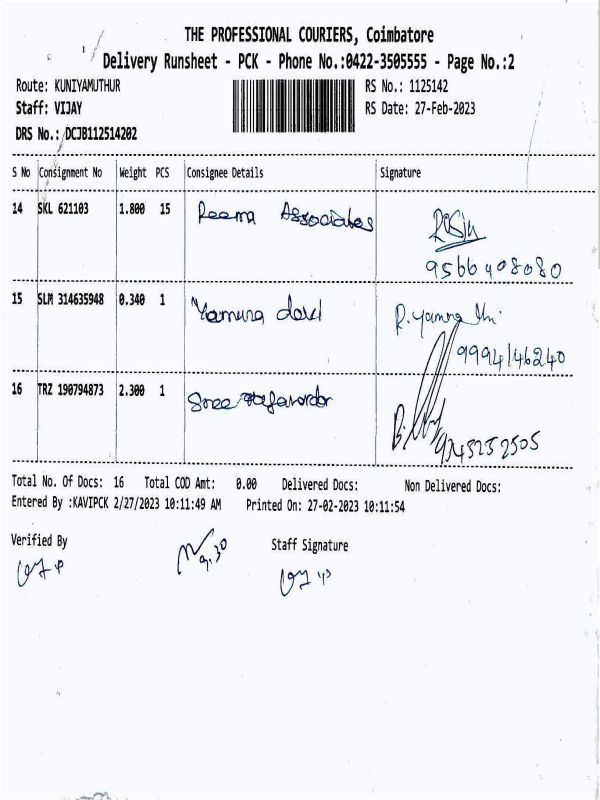 THE PROFESSIONAL COURIERS, Coimbatore
Delivery Runsheet - PCK - Phone No.:0422-3505555 - Page No.:2
Route: KUNIYAMUTHUR RS No.: 1125142
Staff: VIJAY RS Date: 27-Feb-2023
DRS No.: DCJB112514202
S No Consignment No Weight PCS Consignee Details Signature
14 SKL 621103 1.800 15 Reema Associates
9566408080
15 SLM 314635948 0.340 1 Yamuna R. Yamuna
9994146240
16 TRZ 190794873 2.300 1 Sree
9345252505
Total No. Of Docs: 16 Total COD Amt: 0.00 Delivered Docs: Non Delivered Docs:
Entered By :KAVIPCK 2/27/2023 10:11:49 AM Printed On: 27-02-2023 10:11:54
Verified By Staff Signature
9.30